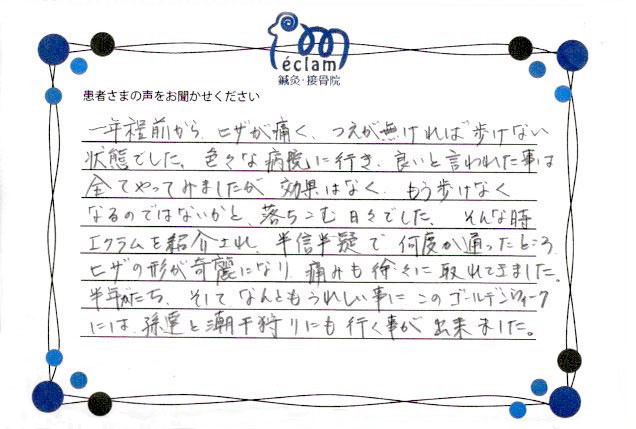 éclam
鍼灸・接骨院
患者さまの声をお聞かせください
一年程前から、ヒザが痛く、つえが無ければ歩けない
状態でした。色々な病院に行き、良いと言われた事は
全てやってみましたが、効果はなく、もう歩けなく
なるのではないかと、落ちこむ日々でした。そんな時
エクラムを紹介され、半信半疑で何度か通ったところ
ヒザの形が奇麗になり、痛みも徐々に取れてきました。
半年がたち、そしてなんともうれしい事にこのゴールデンウィーク
には、孫達と潮干狩りにも行く事が出来ました。